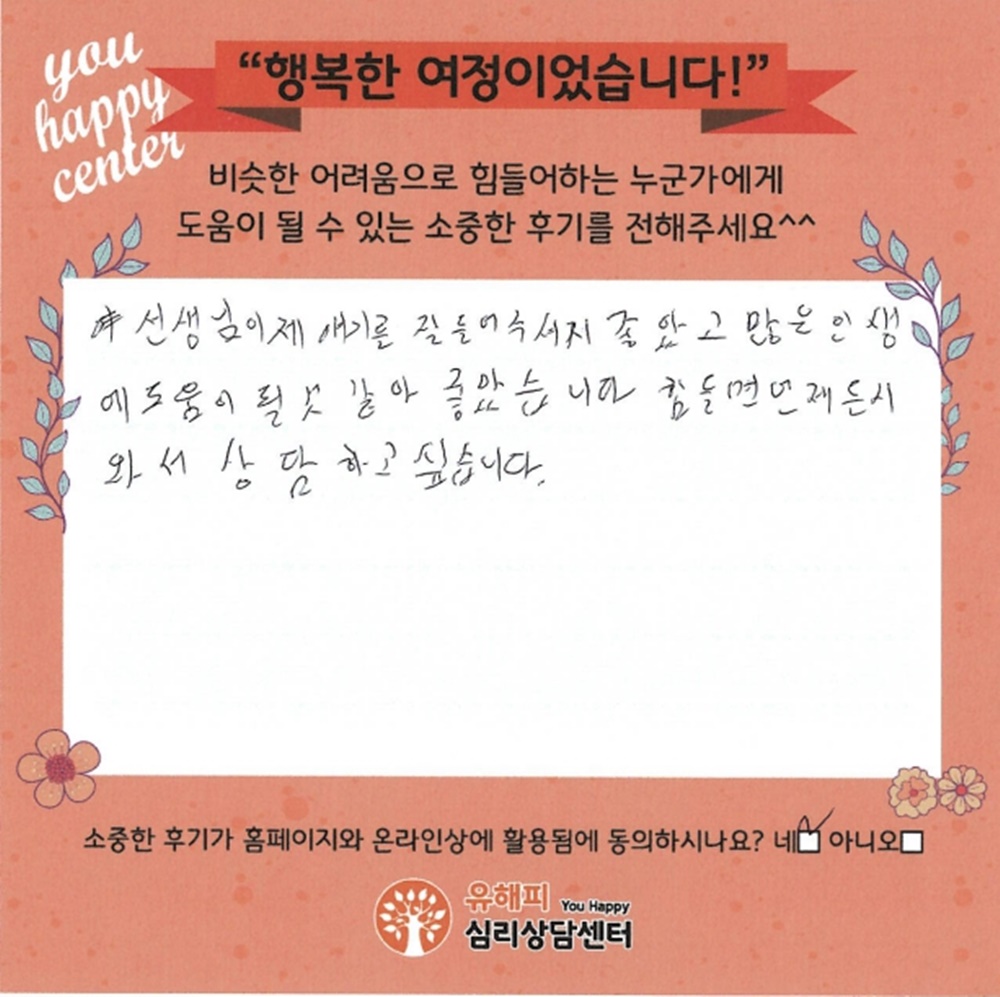 you
happy
center
“행복한 여정이었습니다!”
비슷한 어려움으로 힘들어하는 누군가에게
도움이 될 수 있는 소중한 후기를 전해주세요^^
# 선생님이 제 얘기를 잘 들어주셔서 좋았고 많은 인생
에 도움이 될것 같아 좋았습니다 힘들면 언제든지
와서 상담하고 싶습니다.
소중한 후기가 홈페이지와 온라인상에 활용됨에 동의하시나요? 네☑ 아니오☐
유해피 You Happy
심리상담센터